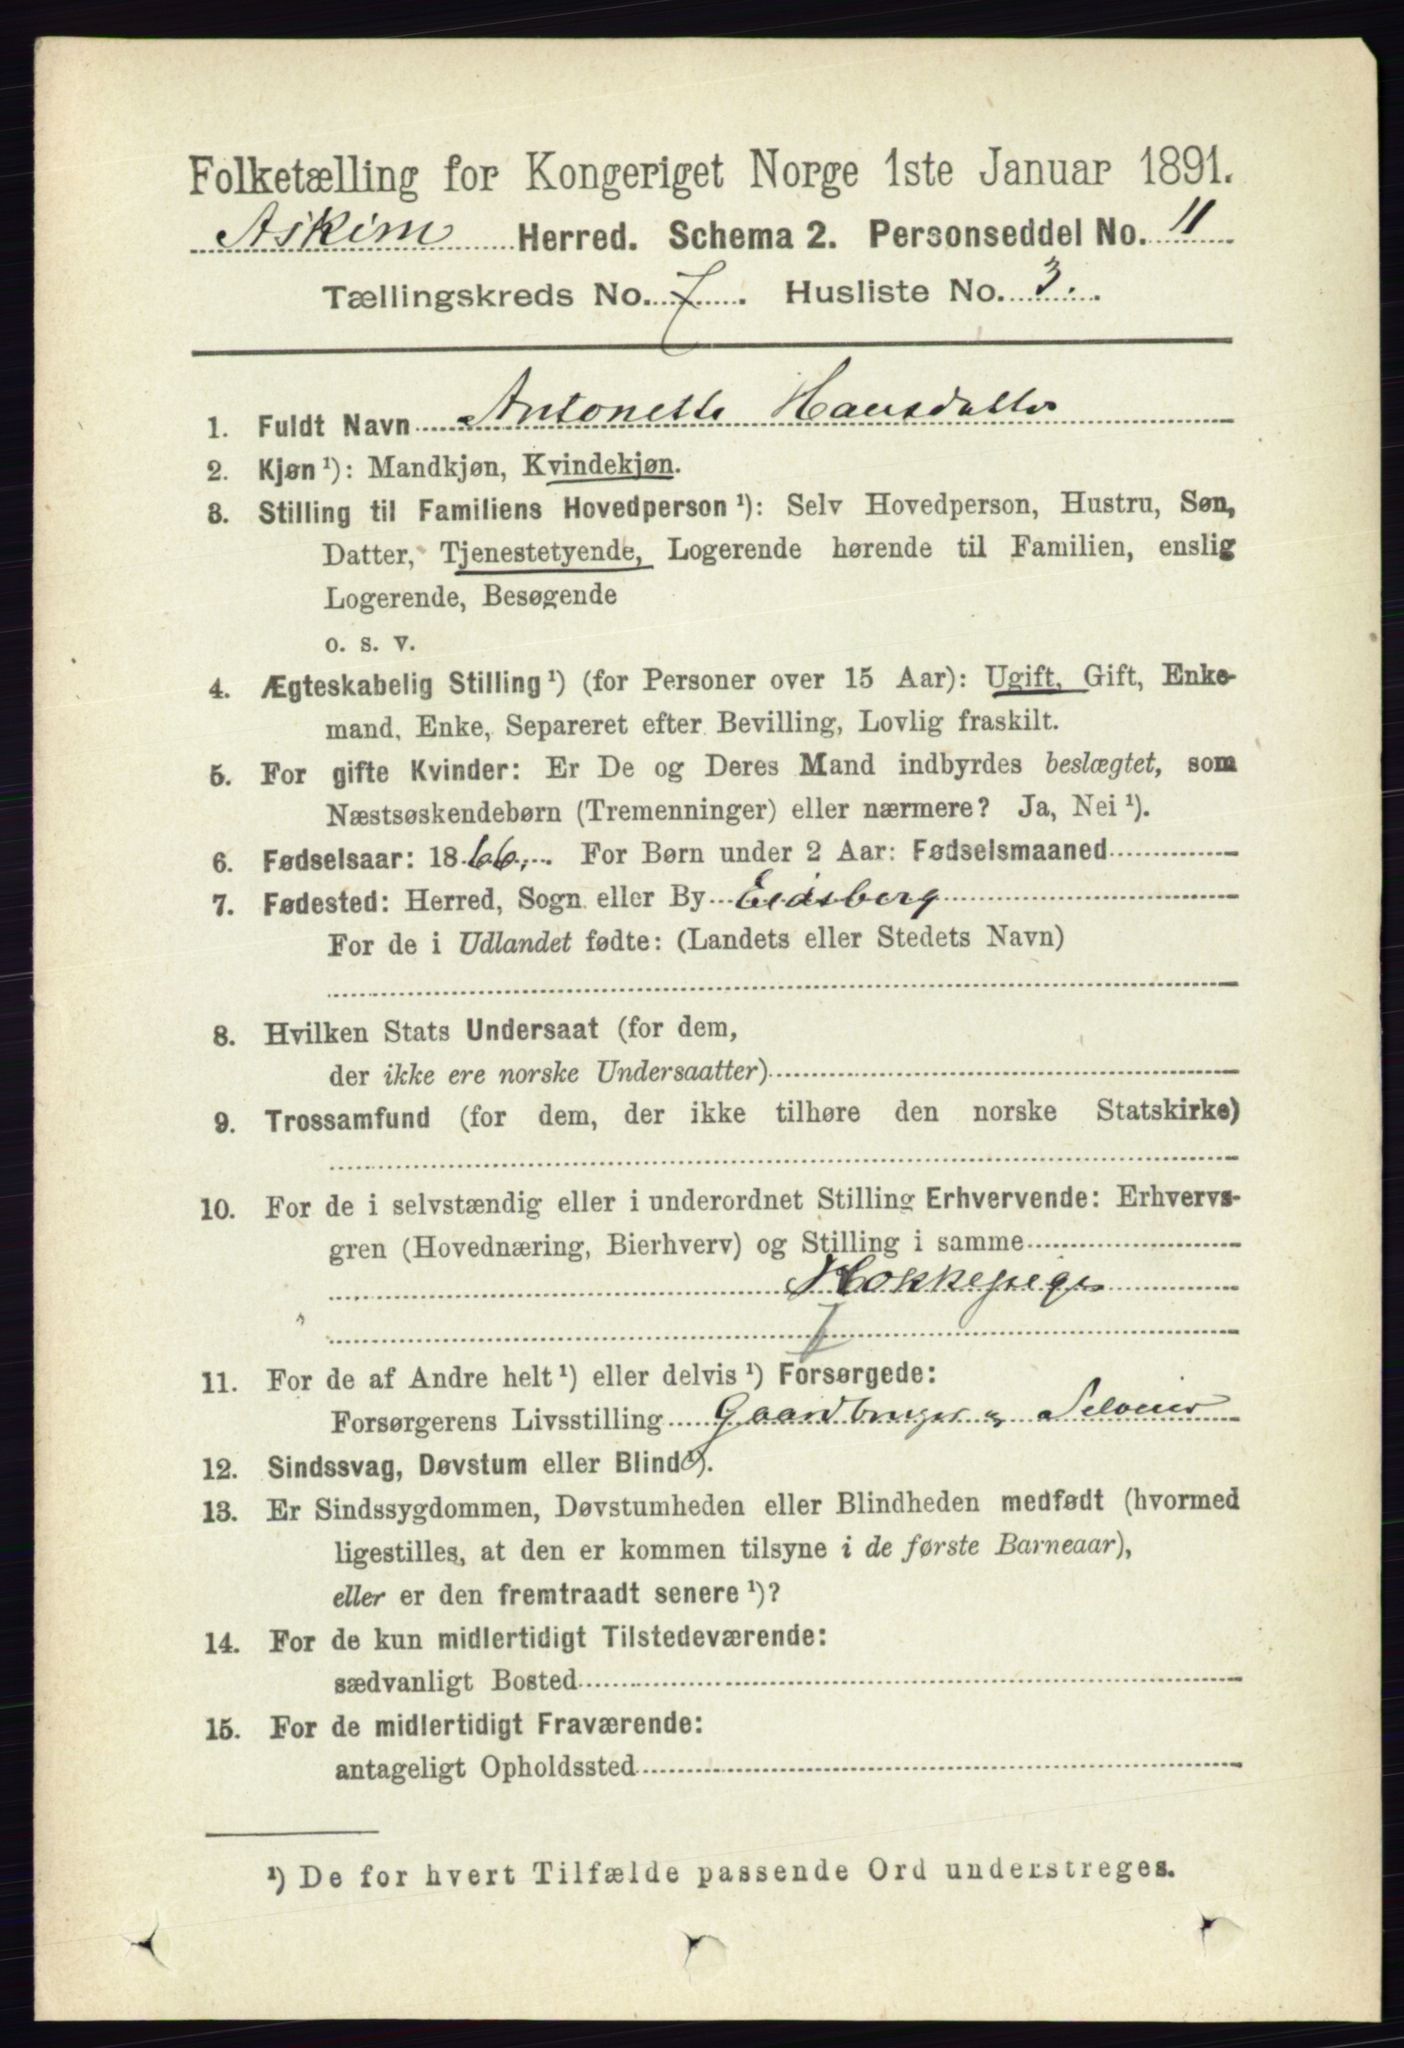 Folketælling for Kongeriget Norge 1ste Januar 1891.
Askim Herred. Schema 2. Personseddel No. 11
Tællingskreds No. 7. Husliste No. 3.
1. Fuldt Navn Antonette Hansdatter
2. Kjøn ¹): Mandkjøn, Kvindekjøn.
3. Stilling til Familiens Hovedperson ¹): Selv Hovedperson, Hustru, Søn,
Datter, Tjenestetyende, Logerende hørende til Familien, enslig
Logerende, Besøgende
o. s. v.
4. Ægteskabelig Stilling ¹) (for Personer over 15 Aar): Ugift, Gift, Enke-
mand, Enke, Separeret efter Bevilling, Lovlig fraskilt.
5. For gifte Kvinder: Er De og Deres Mand indbyrdes beslægtet, som
Næstsøskendebørn (Tremenninger) eller nærmere? Ja, Nei ¹).
6. Fødselsaar: 1866. For Børn under 2 Aar: Fødselsmaaned
7. Fødested: Herred, Sogn eller By Eidsberg
For de i Udlandet fødte: (Landets eller Stedets Navn)
8. Hvilken Stats Undersaat (for dem,
der ikke ere norske Undersaatter)
9. Trossamfund (for dem, der ikke tilhøre den norske Statskirke)
10. For de i selvstændig eller i underordnet Stilling Erhvervende: Erhvervs-
gren (Hovednæring, Bierhverv) og Stilling i samme
Kokkepige
11. For de af Andre helt ¹) eller delvis ¹) Forsørgede:
Forsørgerens Livsstilling Gaardbruger og Seloeier
12. Sindssvag, Døvstum eller Blind ¹).
13. Er Sindssygdommen, Døvstumheden eller Blindheden medfødt (hvormed
ligestilles, at den er kommen tilsyne i de første Barneaar),
eller er den fremtraadt senere ¹)?
14. For de kun midlertidigt Tilstedeværende:
sædvanligt Bosted
15. For de midlertidigt Fraværende:
antageligt Opholdssted
¹) De for hvert Tilfælde passende Ord understreges.